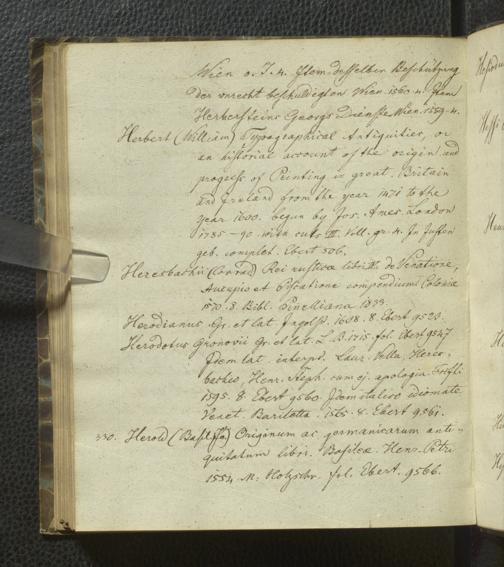 Wien o. J. 4. Item desselben Beschützung
der unrecht beschuldigten Wien 1560. 4. Item
Herbersteins Georgs Dienste Wien. 1559. 4.
Herbert (William) Typographical Antiquities, or
an historial account of the origin and
progress of Printing in great Britain
and Ireland from the year 1471 to the
year 1600. begun by Jos. Ames. London
1785 – 90. with cuts III. Voll. gr. 4. In
geb. complet. Ebert 506.
Heresbachii (Conrad) Rei rusticae libri de Venatione,
Aucupio et Piscatione compendium Coloniae
1570. 8. Bibl. Pinelliana 1833.
Herodianus Gr. et lat. Ingolst. 1608. 8. Ebert 9523.
Herodotus Gronovii Gr. et lat. L. B. 1715. fol. Ebert 9547
Idem lat. interpr. Laur. Valla, Heres-
bachio, Henr. Steph. cum ej. apologia
1595. 8. Ebert 9560. Idem italico idiomate
Venet. Bariletta 1565. 8. Ebert 9561.
330. Herold (Basil) Originum ac germanicarum anti-
quitatum libri. Basileae. Henr. Petri
1557. M. Holzschn. fol. Ebert. 9566.